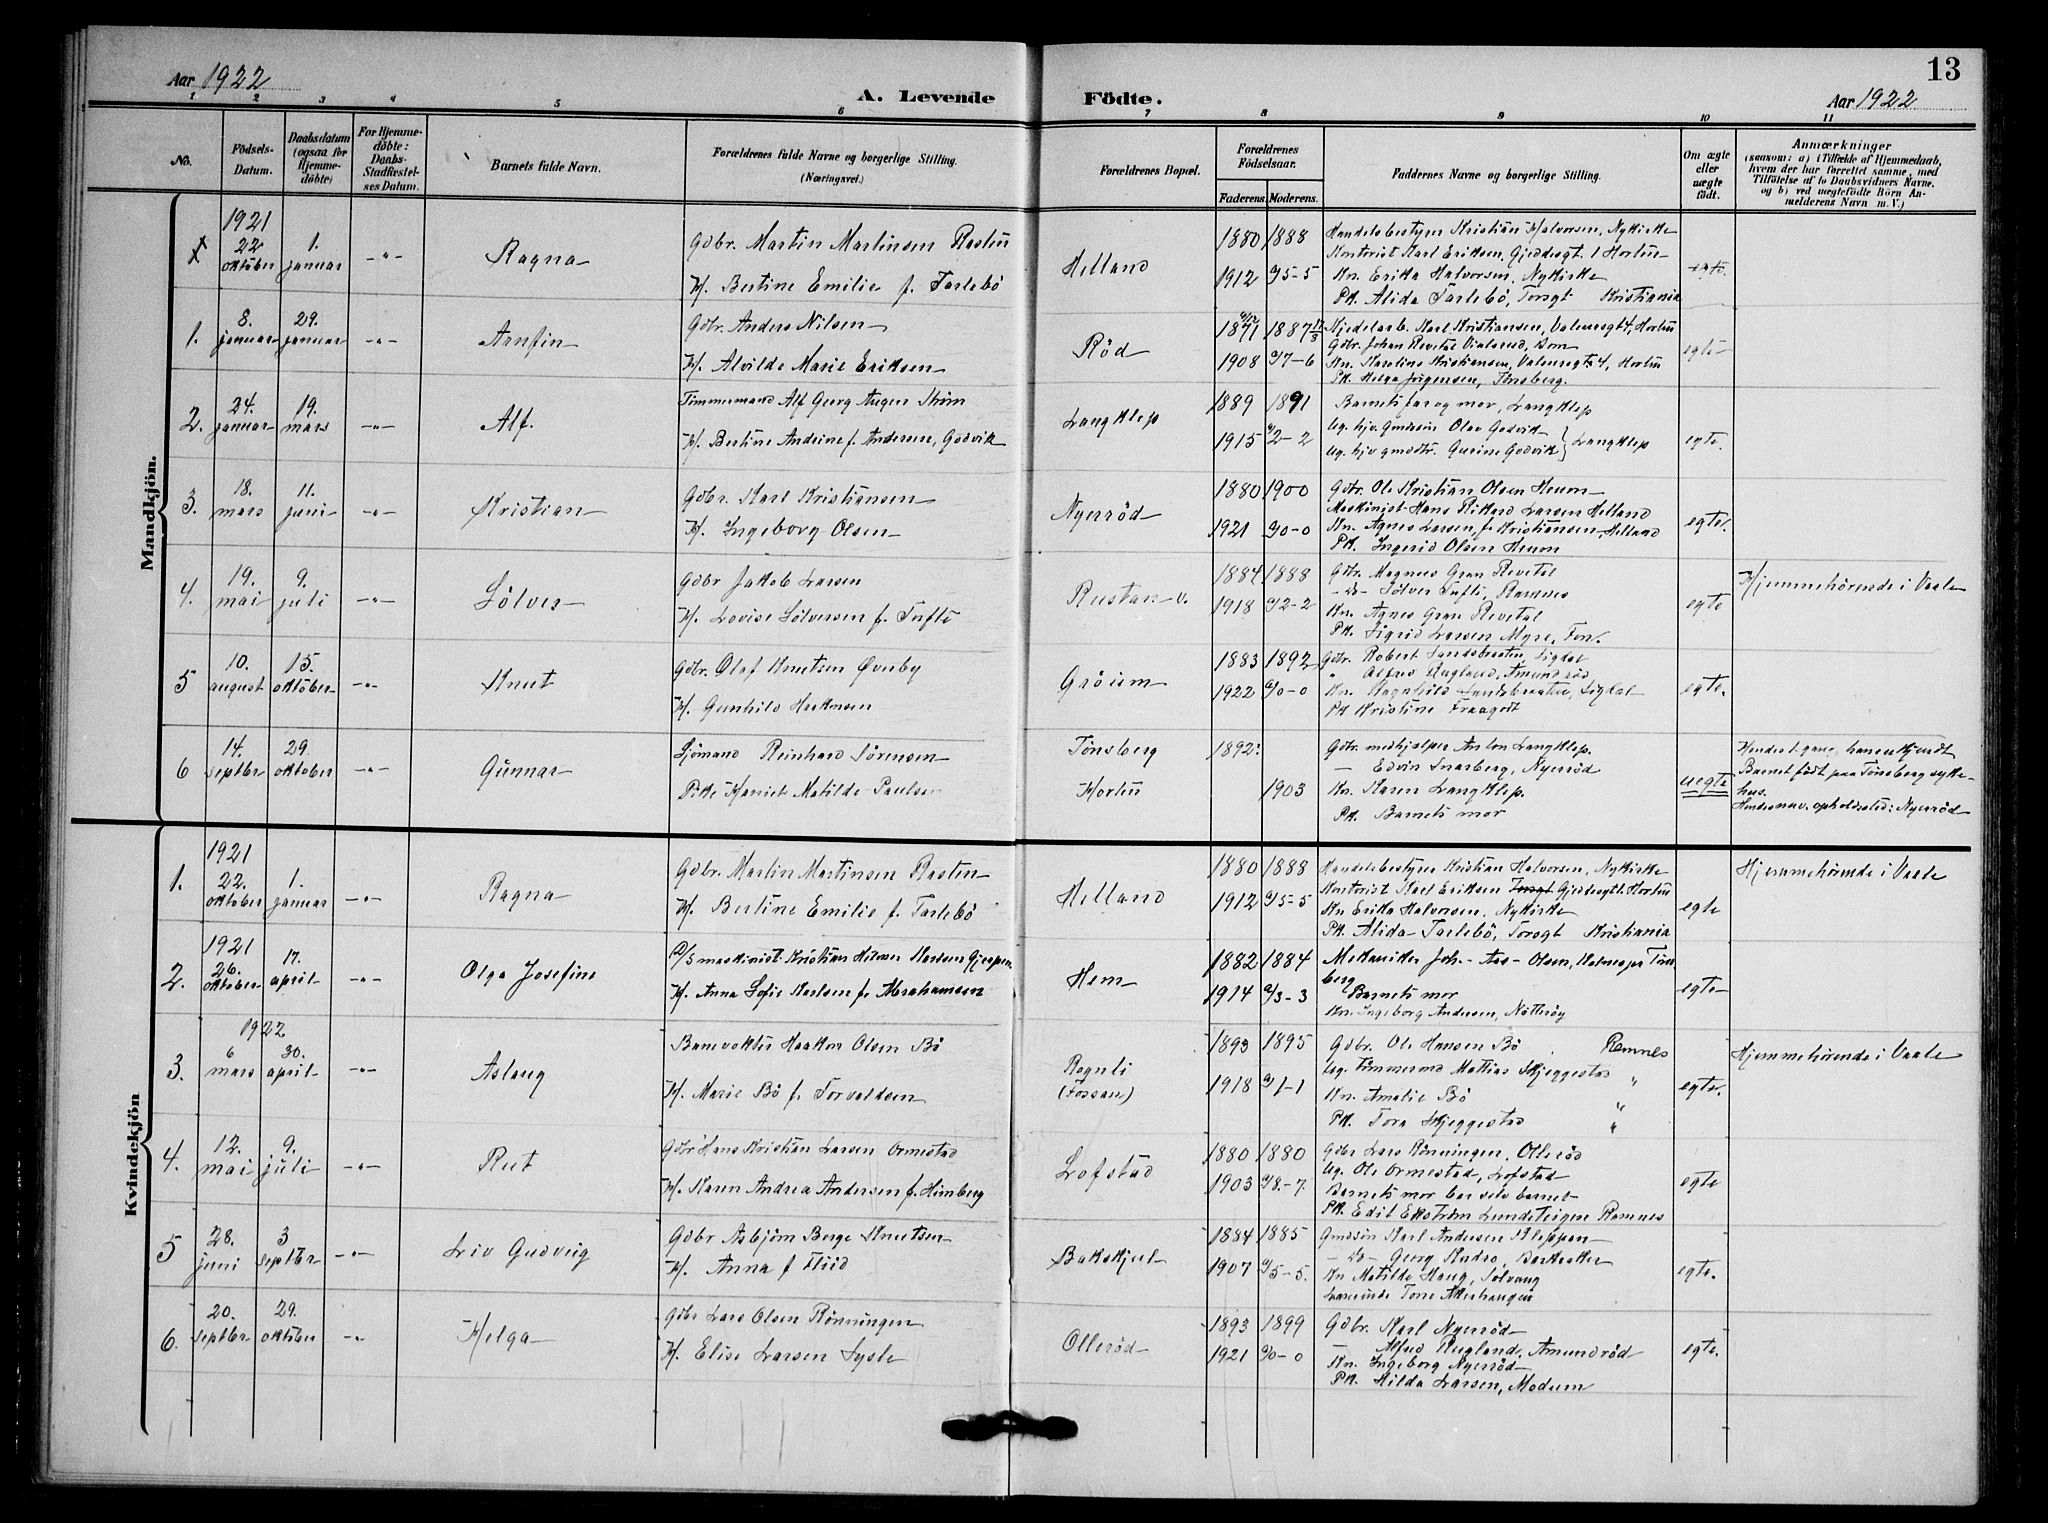 13
Aar 1922
A. Levende Födte.
Aar 1922
1 2 3 4 5 6 7 8 9 10 11
No.
Födsels-Datum.
Daabsdatum (ogsaa for Hjemme-döbte)
For Hjemme-döbte: Daabs-Stadfæstel-ses Datum.
Barnets fulde Navn.
Forældrenes fulde Navne og borgerlige Stilling.
(Næringsvei.)
Forældrenes Bopæl.
Forældrenes Födselsaar.
Faderens. Moderens.
Faddernes Navne og borgerlige Stilling.
Om ægte eller uægte födt.
Anmærkninger
(saasom: a) i Tilfælde af Hjemmedaab,
hvem der har forrettet samme, med
Tilföielse af to Daabsvidners Navne,
og b) ved uægtefödte Börn An-
melderens Navn m. V.)
Mandkjön.
1921
22 oktober 1. januar -"- Ragna
Gdbr. Martin Martinsen Rasten
H. Bertine Emilie f. Tarlebö
Helland
1880 1888
1912 5-5
Handelsbestyrer Kristian Halvorsen, Nykirke
Kontorist Karl Eriksen, Gjeddegt. 1 Horten
Kn. Erika Halvorsen, Nykirke
Pk. Alida Tarlebö, Torggt Kristiania
egte.
1. 8. januar 29. januar -"- Arnfin
Gdbr. Anders Nilsen
H. Alvilde Marie Eriksen
Röd
1871 1887
1908 7-6
Kjedelarb. Karl Kristiansen, Valensgt 4, Horten
Gdbr. Johan Revetal
Kn. Karoline Kristiansen, Valensgt 4, Horten
Pk. Helga Jörgensen, Tönsberg.
egte
2. 24. januar 19. mars -"- Alf.
Timmermand Alf Georg August Ström
H. Bertine Andrine f. Andersen, Godvik
Langklep
1889 1891
1915 2-2
Barnets far og mor, Langklep
Ug. hjv. gmdssön Olav Godvik
Ug. hjv gmdtr. Gurine Godvik } Langklep
egte.
3. 18. mars 11. juni -"- Kristian
Gdbr. Karl Kristiansen
H. Ingeborg Olsen
Nyerröd
1880 1900
1921 0-0
Gdbr. Ole Kristian Olsen Heum
Maskinist Hans Rikard Larsen Helland
Kn. Agnes Larsen, f. Kristiansen, Helland
Pk. Ingerid Olsen Heum
egte.
4. 19. mai 9. juli -"- Sölver
Gdbr Jakob Larsen
H. Lovise Sölversen f. Tufte
Rustan v.
1884 1888
1918 2-2
Gdbr. Magnus Gran Revetal
-do- Sölver Tufte, Ramnes
Kn. Agnes Gran Revetal
Pk. Sigrid Larsen Myre, Ton.
egte
Hjemmehörende i Vaale
5 10. august 15. oktober -"- Knut
Gdbr. Olaf Knutsen Øvreby
H. Gunhild Haakonsen
Gröium
1883 1892
1922 0-0
Gdbr. Robert Landsbraaten Sigdal
" Alfred Rugland, Amundröd
Kn. Ragnhild Landsbraaten, Sigdal
Pk Kristine Fraagodt
egte.
6 14. septbr 29. oktober -"- Gunnar
Sjömand Reinhard Sörensen
Pike Harriet Matilde Paulsen
Tönsberg
Horten
1892:
1903
Gdbr. medhjælper Anton Langklep.
— Edvin Snarberg, Nyerröd
Kn. Karen Langklep.
Pk. Barnets mor
uegte
Hendes 1. gang, hans ukjendt
Barnet födt paa Tönsberg syke-
hus.
Hendes nuv. opholdssted: Nyerröd
Kvindekjön
1921
1. 22. oktober 1. januar -"- Ragna
Gdbr. Martin Martinsen Rasten
H. Bertine Emilie f. Tarlebö
Helland
1880 1888
1912 5-5
Handelsbestyrer Kristian Halvorsen, Nykirke
Kontorist Karl Eriksen Torsgt Gjeddegt 1. Horten
Kn Erika Halvorsen, Nykirke
Pk. Alida Tarlebö, Torggt Kristiania
egte
Hjemmehörende i Vaale
1921
2. 26. oktober 17. april -"- Olga Josefine
maskinist Kristian Hilmer Karlsen Gjerpen
H. Anna Sofie Karlsen f. Abrahamsen
Hem
1882 1884
1914 3-3
Mekaniker Joh. Aas-Olsen, Kalnes pr Töns
berg
Barnets mor
Kn. Ingeborg Andersen, Nötteröy
egte
1922
3. 6 mars 30. april -"- Aslaug
Banevokter Haakon Olsen Bö
H. Marie Bö f. Torvaldsen
Rognli
(Fossan)
1893 1895
1918 1-1
Gdbr. Ole Hansen Bö Ramnes
Ug. Timmermd Mattias Skjeggestad "
Kn. Amalie Bö "
Pk. Tora Skjeggestad "
egte.
Hjemmehörende i Vaale
4. 12. mai 9. juli -"- Rut
Gdbr Hans Kristian Larsen Ormestad
H. Karen Andrea Andersen f. Himberg
Lofstad
1880 1880
1903 8-7.
Gdbr Lars Rönningen, Olleröd
Ug. Ole Ormestad, Lofstad
Barnets mor bar selv barnet
Pk. Edit Ekström Lundteigen Ramnes
egte
5 28. juni 3 septbr -"- Liv Gudveig
Gdbr Asbjörn Berge Knutsen
H. Anna f Fliid
Bakskjul
1884 1885
1907 5-5.
Gmdssön Karl Andersen Kleppan
-do- Georg Kudro, Barkaaker
Kn Matilde Haug, Solvang
Lærerinde Tone Akerhaugen
egte.
6. 20. septbr 29. oktober -"- Helga
Gdbr Lars Olsen Rönningen
H. Elise Larsen Sysle
Olleröd
1893 1899
1921 0-0
Gdbr. Karl Nyerröd
— Alfred Rugland, Amundröd
Kn. Ingeborg Nyerröd
Pk. Hilda Larsen, Modum
egte.